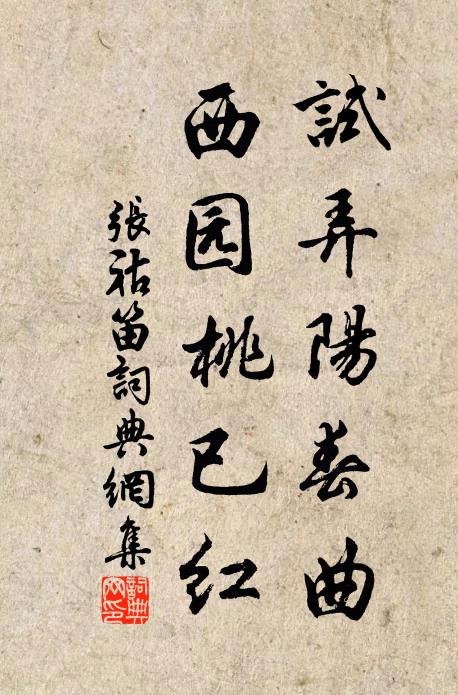 試弄陽春曲
西园桃已红
張祜笛詞典網集
詞典
网印